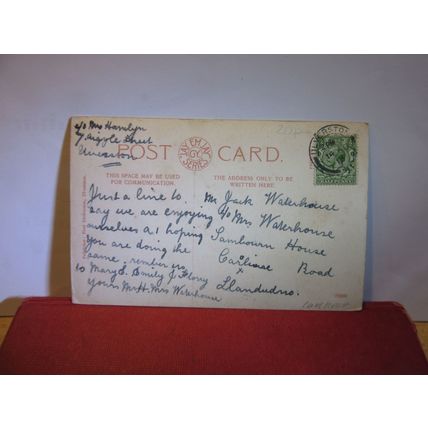 c/o Mrs Hamlyn
7 Argyle Street
Ulverston
POST CARD.
THIS SPACE MAY BE USED
FOR COMMUNICATION.
THE ADDRESS ONLY TO BE
WRITTEN HERE.
Just a line to
say we are enjoying
ourselves a1 hoping
You are doing the
same. rember us
to Mary E. Emily J. Flory
Yours Mr H. Mrs Waterhouse
Mr Jack Waterhouse
c/o Mrs Waterhouse
Sambourn House
Road
Llandudno.
ULVERSTON
SERIES